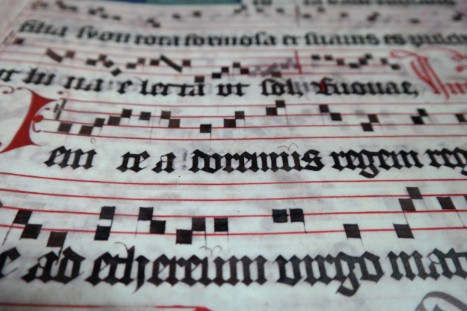 filia syon tota formosa et suauis es pulc
ut lu na e lecta ut sol, Euouae,
eni te a doremus regem reg
ad ethereum uirgo mat